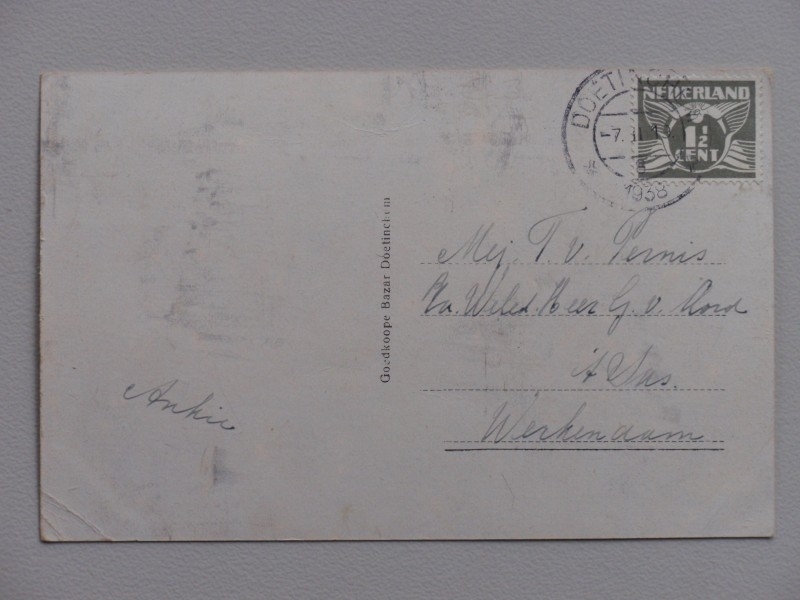 DOETINCHEM
1938
NEDERLAND
1½
CENT
Goedkoope Bazar Doetinchem
Mej. T. v. Pernis
p/a. Weled. Heer G. v. Noord
't Sas.
Werkendam
Ankie